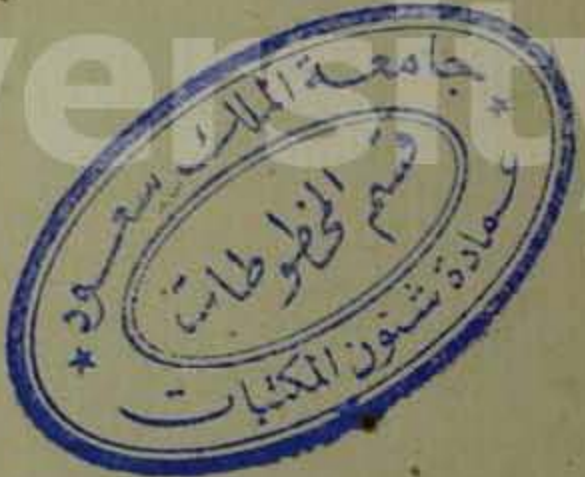 versit
جامعة الملك سعود
قسم المخطوطات
عمادة شئون المكتبات